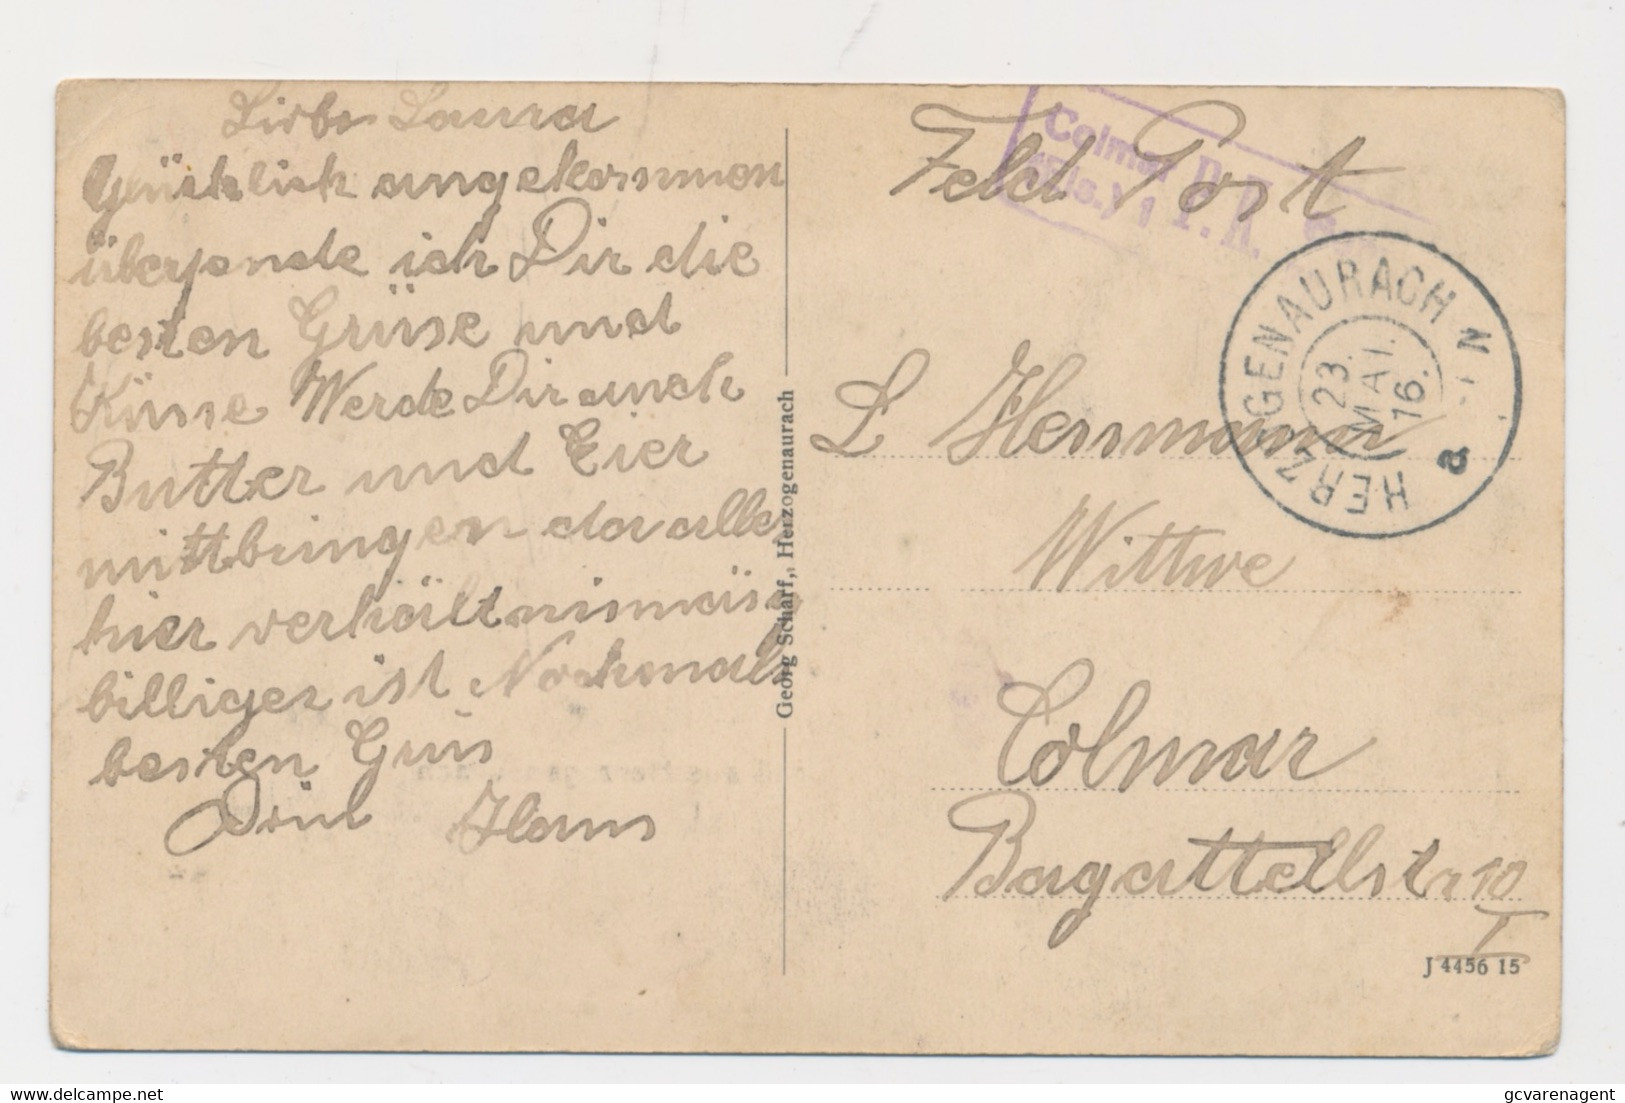 Liebe Laura
Glücklich angekommen
übersende ich Dir die
besten Grüse und
Küsse Werde Dir auch
Butter und Eier
mittbringen da alles
hier verhältnismäsig
billiger ist Nochmals
besten Grus
Dein Hans
Georg Scharf, Herzogenaurach
Feld Post
Colmar
(Els.) 1 P. K.
HERZOGENAURACH
23.
MAI.
16.
a
L Herrmann
Wittwe
Colmar
Bagattellstr 10
I
J 4456 15
gcvarenagent